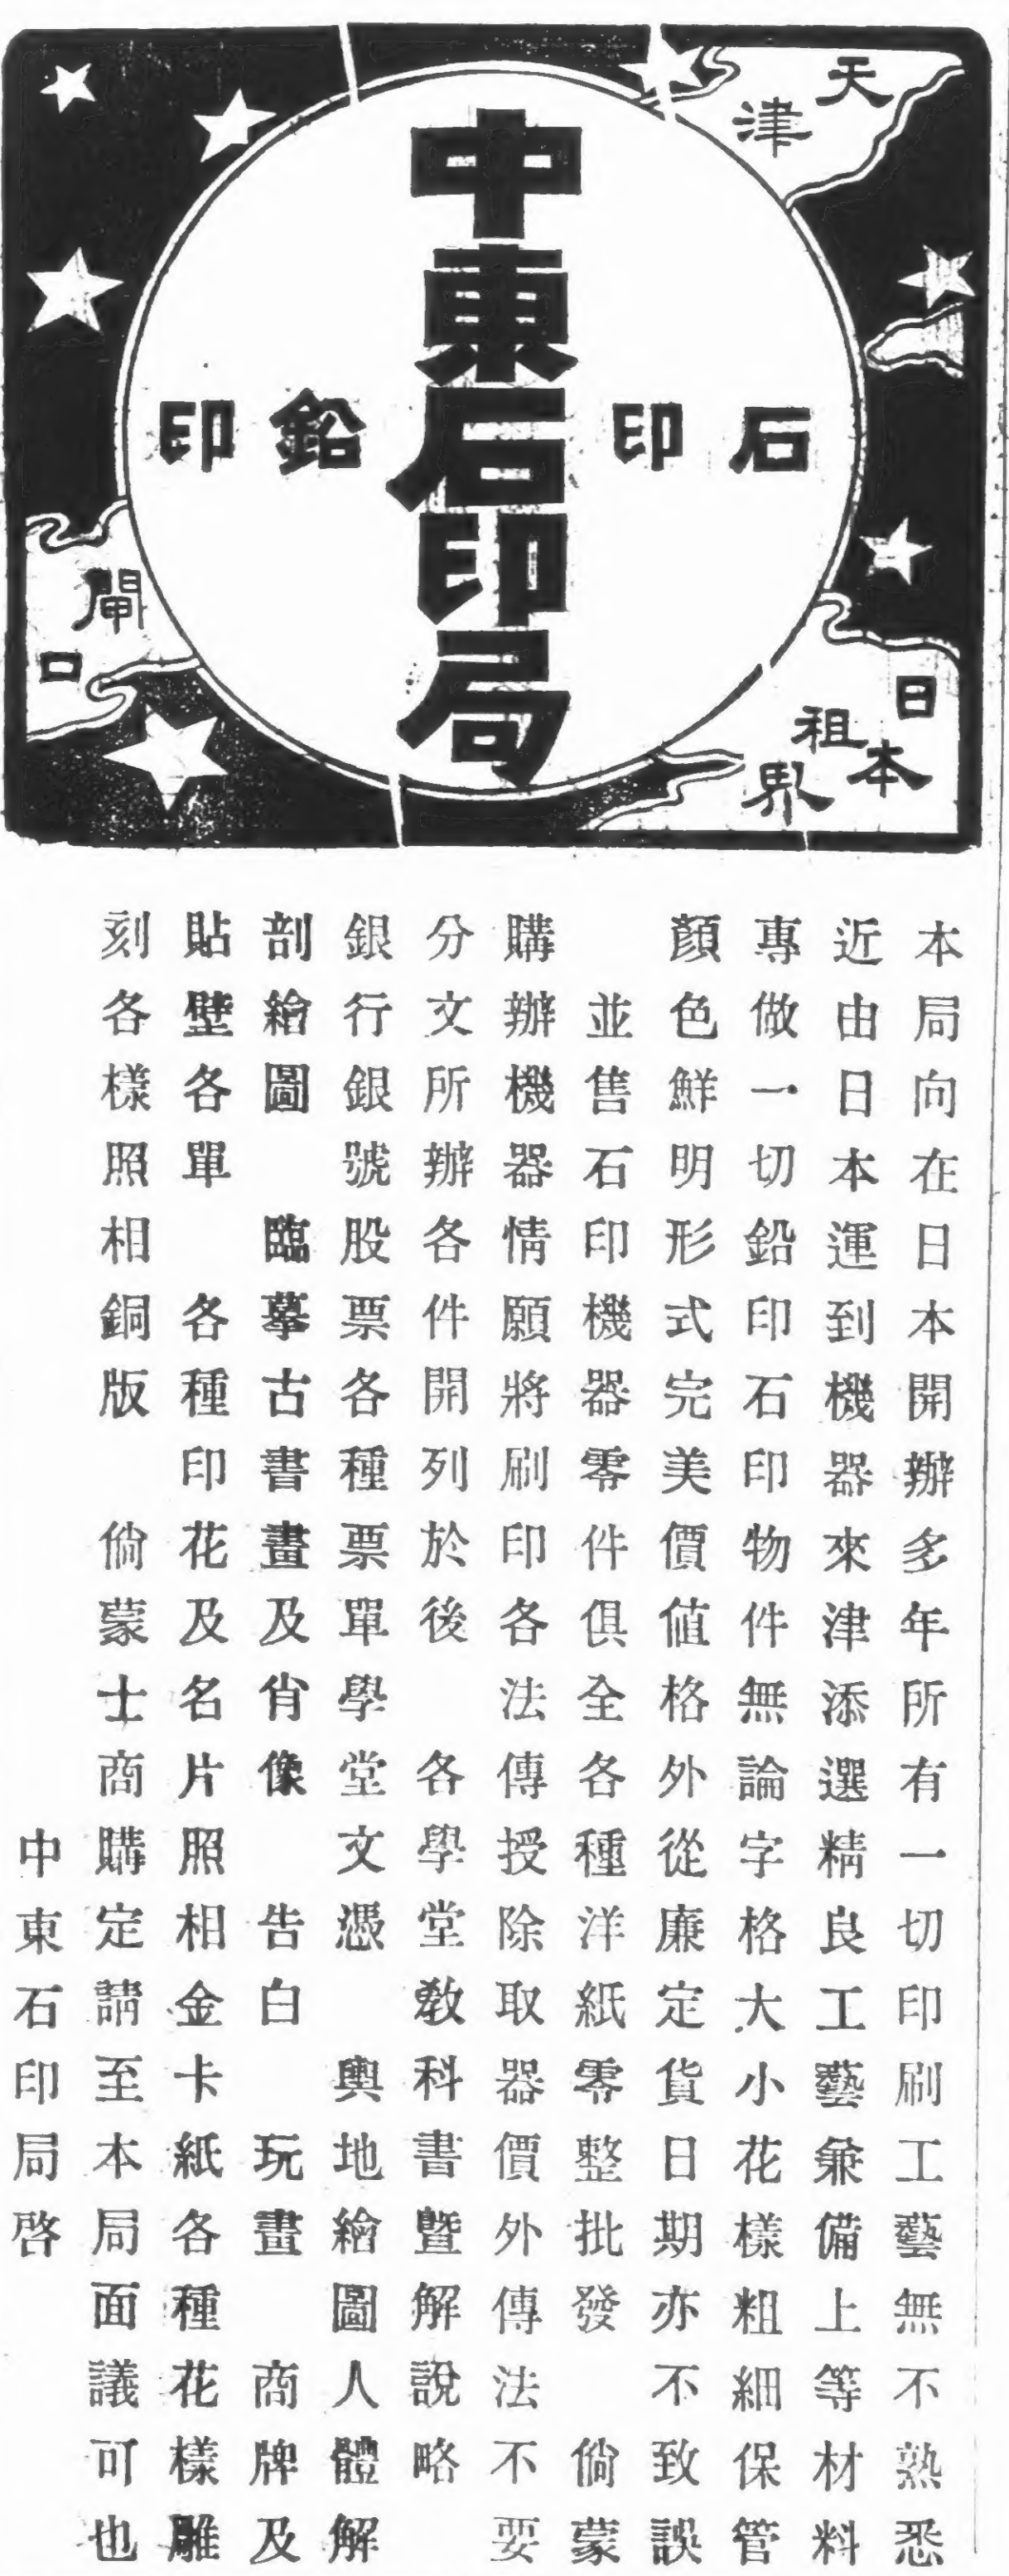 天津
日本租界
閘口
中東石印局
石印
鉛印
本局向在日本開辦多年所有一切印刷工藝無不熟悉
近由日本運到機器來津添選精良工藝兼備上等材料
專做一切鉛印石印物件無論字格大小花樣粗細保管
顏色鮮明形式完美價值格外從廉定貨日期亦不致誤
並售石印機器零件俱全各種洋紙零整批發 倘蒙
購辦機器情願將刷印各法傳授除取器價外傳法不要
分文所辦各件開列於後 各學堂教科書暨解說略
銀行銀號股票各種票單學堂文憑 輿地繪圖人體解
剖繪圖 臨摹古書畫及肖像 告白 玩畫 商牌及
貼壁各單 各種印花及名片照相金卡紙各種花樣雕
刻各樣照相銅版 倘蒙士商購定請至本局面議可也
中東石印局啓